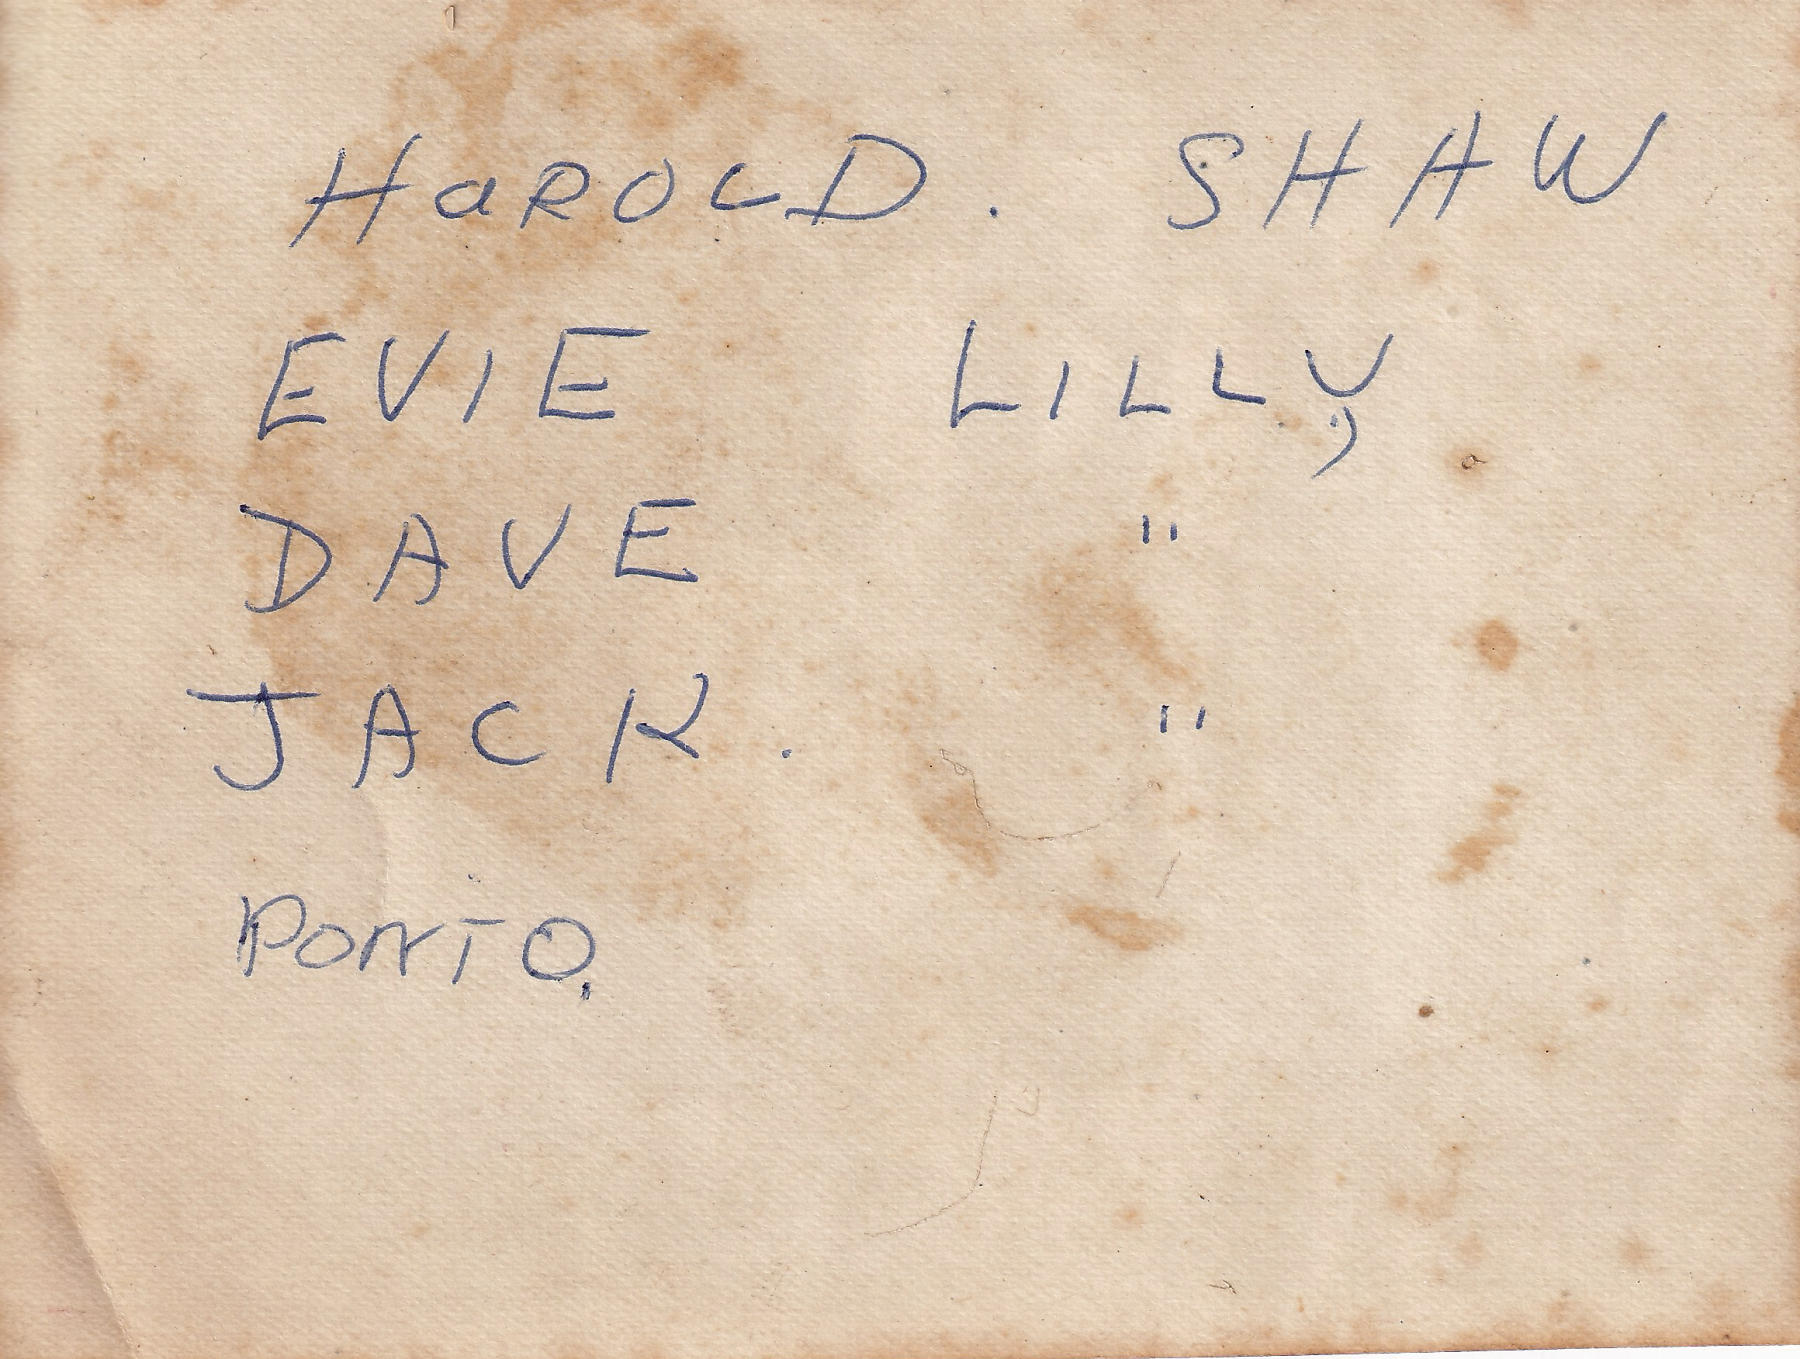 HaROLD. SHAW
EVIE LILLY
DAVE "
JACK. "
PONTO.